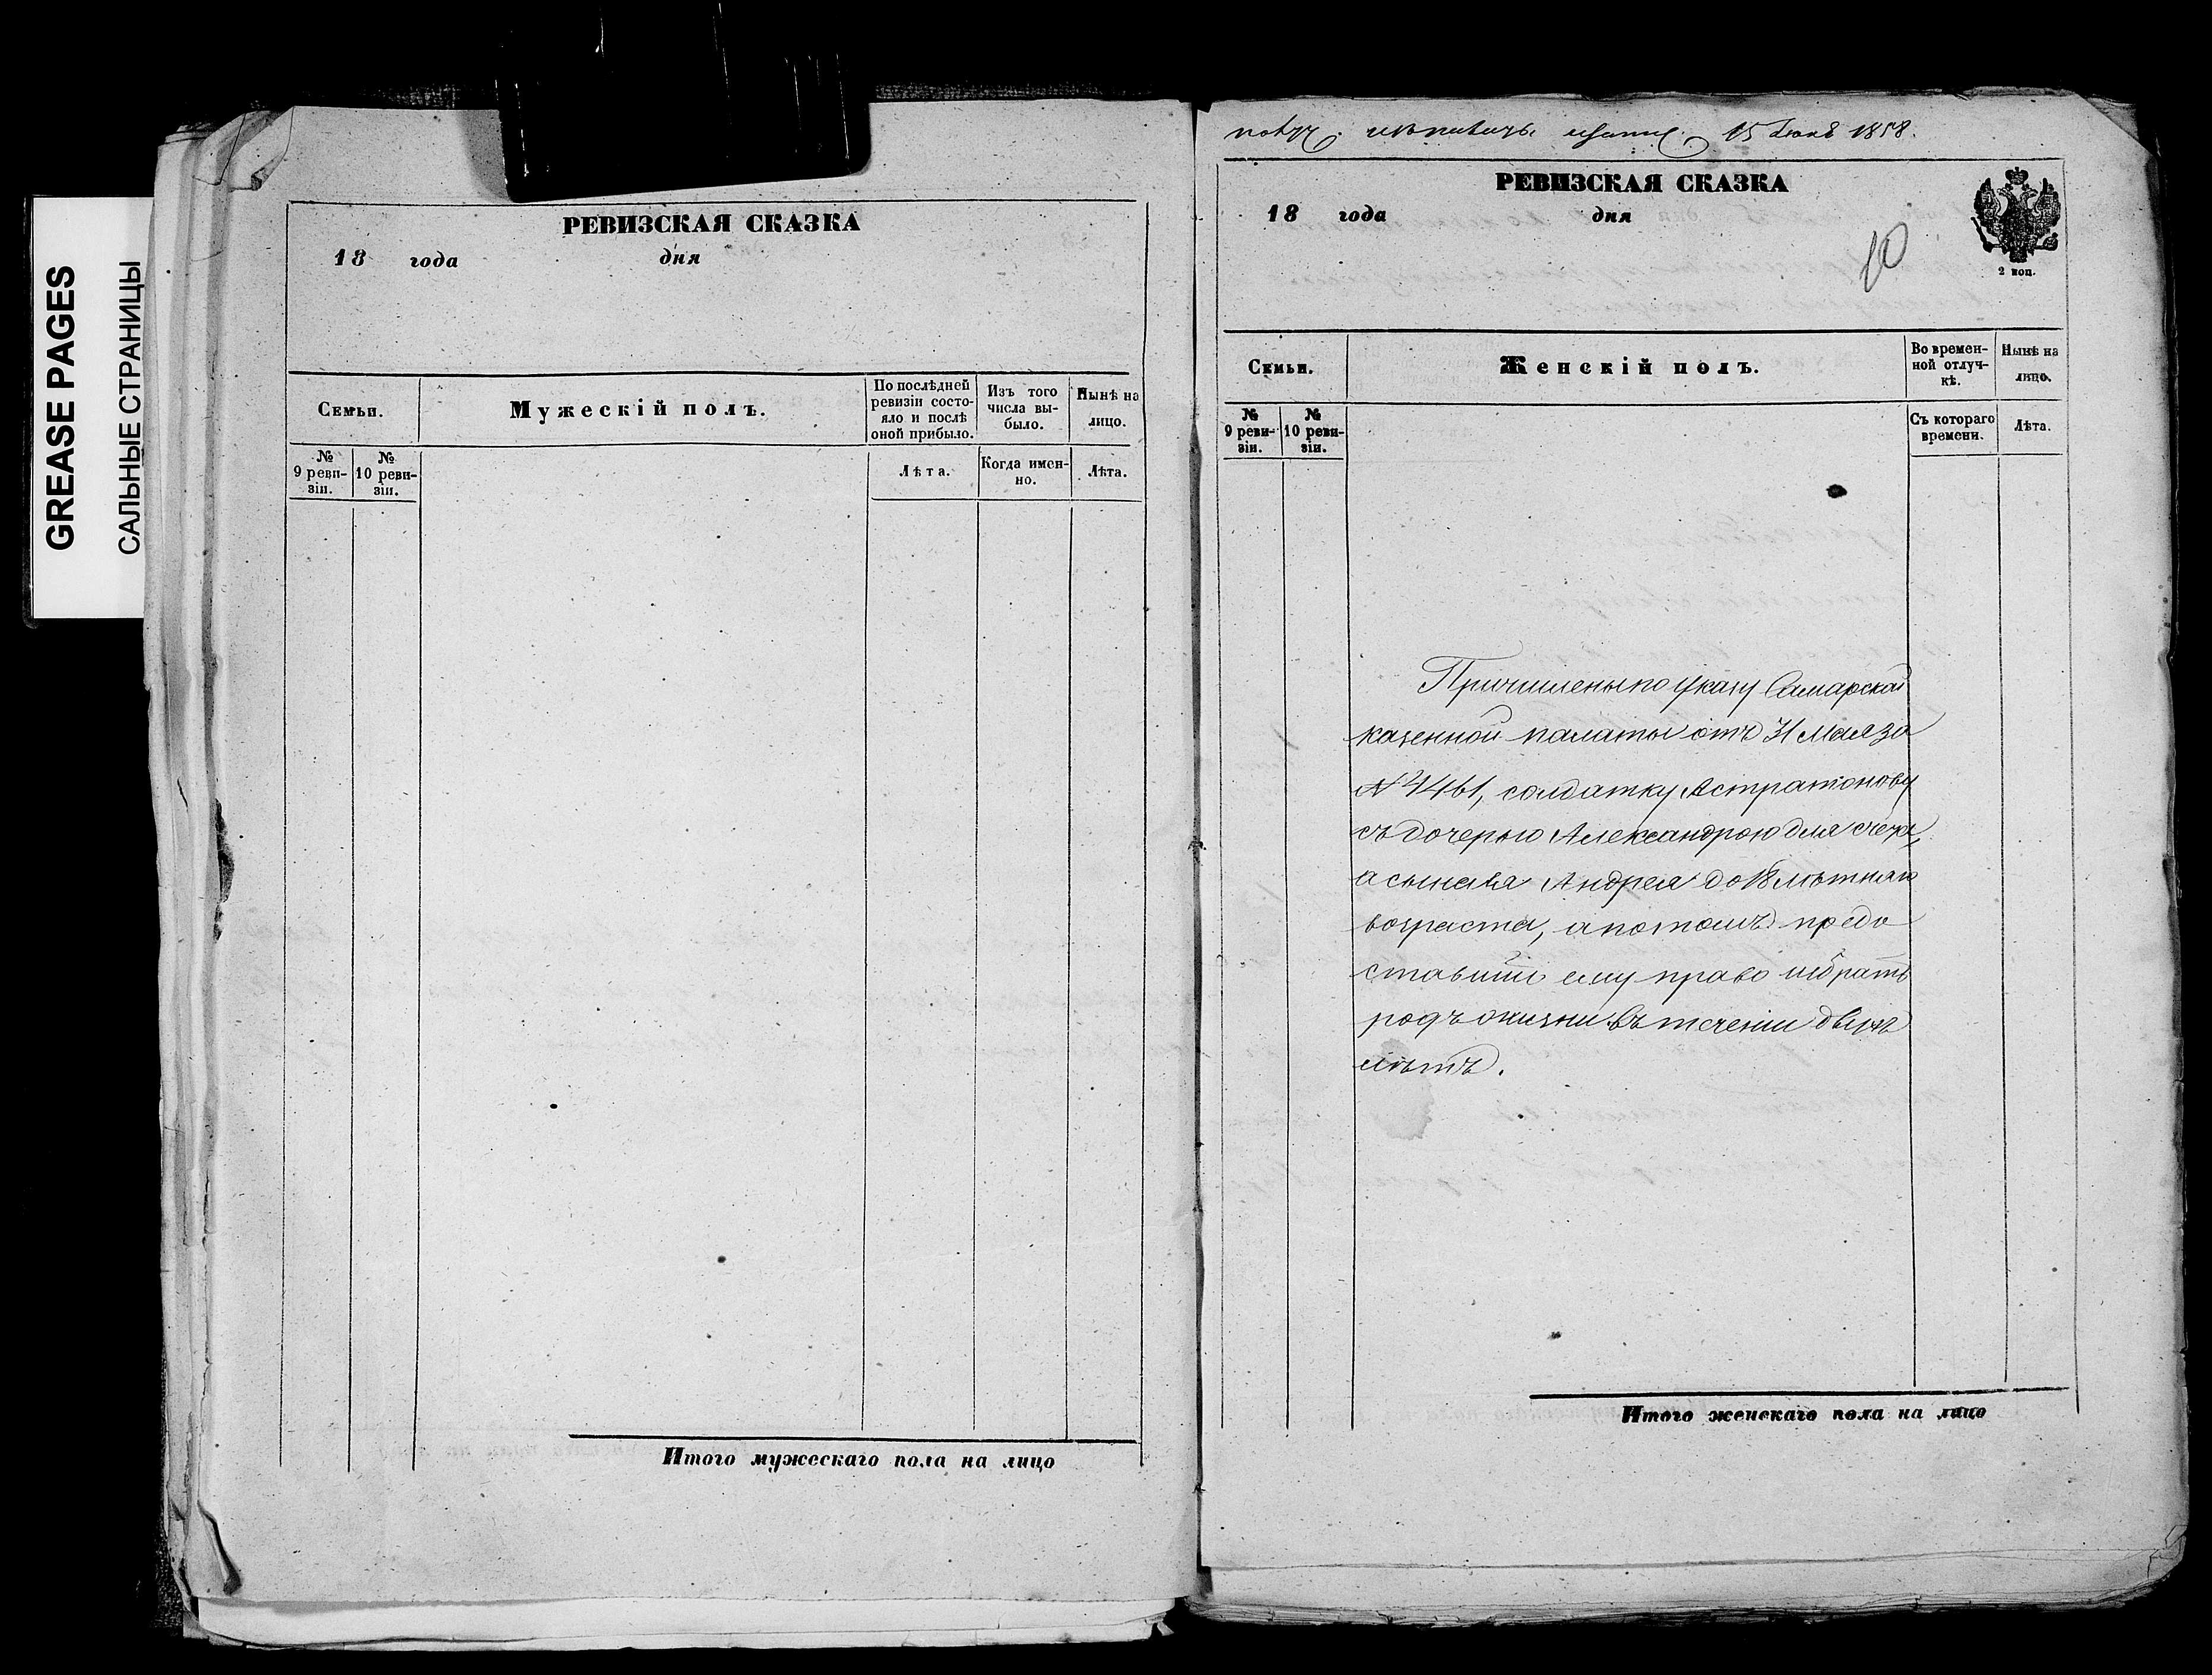 GREASE PAGES
САЛЬНЫЕ СТРАНИЦЫ
РЕВИЗСКАЯ СКАЗКА
18 года дня
Семьи.
Мужескій полъ.
По послѣдней
ревизіи состо-
яло и послѣ
оной прибыло.
Изъ того
числа вы-
было.
Нынѣ на
лицо.
№
9 реви-
зіи.
№
10 реви-
зіи.
Лѣта.
Когда имен-
но.
Лѣта.
Итого мужескаго пола на лицо
15 Іюня 1858.
РЕВИЗСКАЯ СКАЗКА
18 года дня
10
2 коп.
Семьи.
Женскій полъ.
Во времен-
ной отлуч-
кѣ.
Нынѣ на
лицо.
№
9 реви-
зіи.
№
10 реви-
зіи.
Съ котораго
времени.
Лѣта.
Причислены по указу Самарской
казенной палаты отъ 31 Мая за
№ 4461, солдатку Астратонову
съ дочерью Александрою для счета,
а сына ея Андрея до 18 лѣтняго
возраста, а потомъ предо
ставить ему право избрать
родъ жизни въ теченіи двухъ
лѣтъ.
Итого женскаго пола на лицо